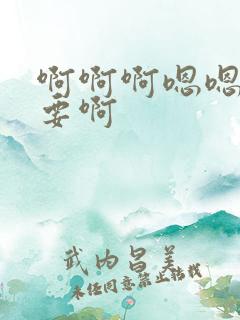 啊啊啊嗯嗯
要啊
武内昌美
未经同意禁止转载